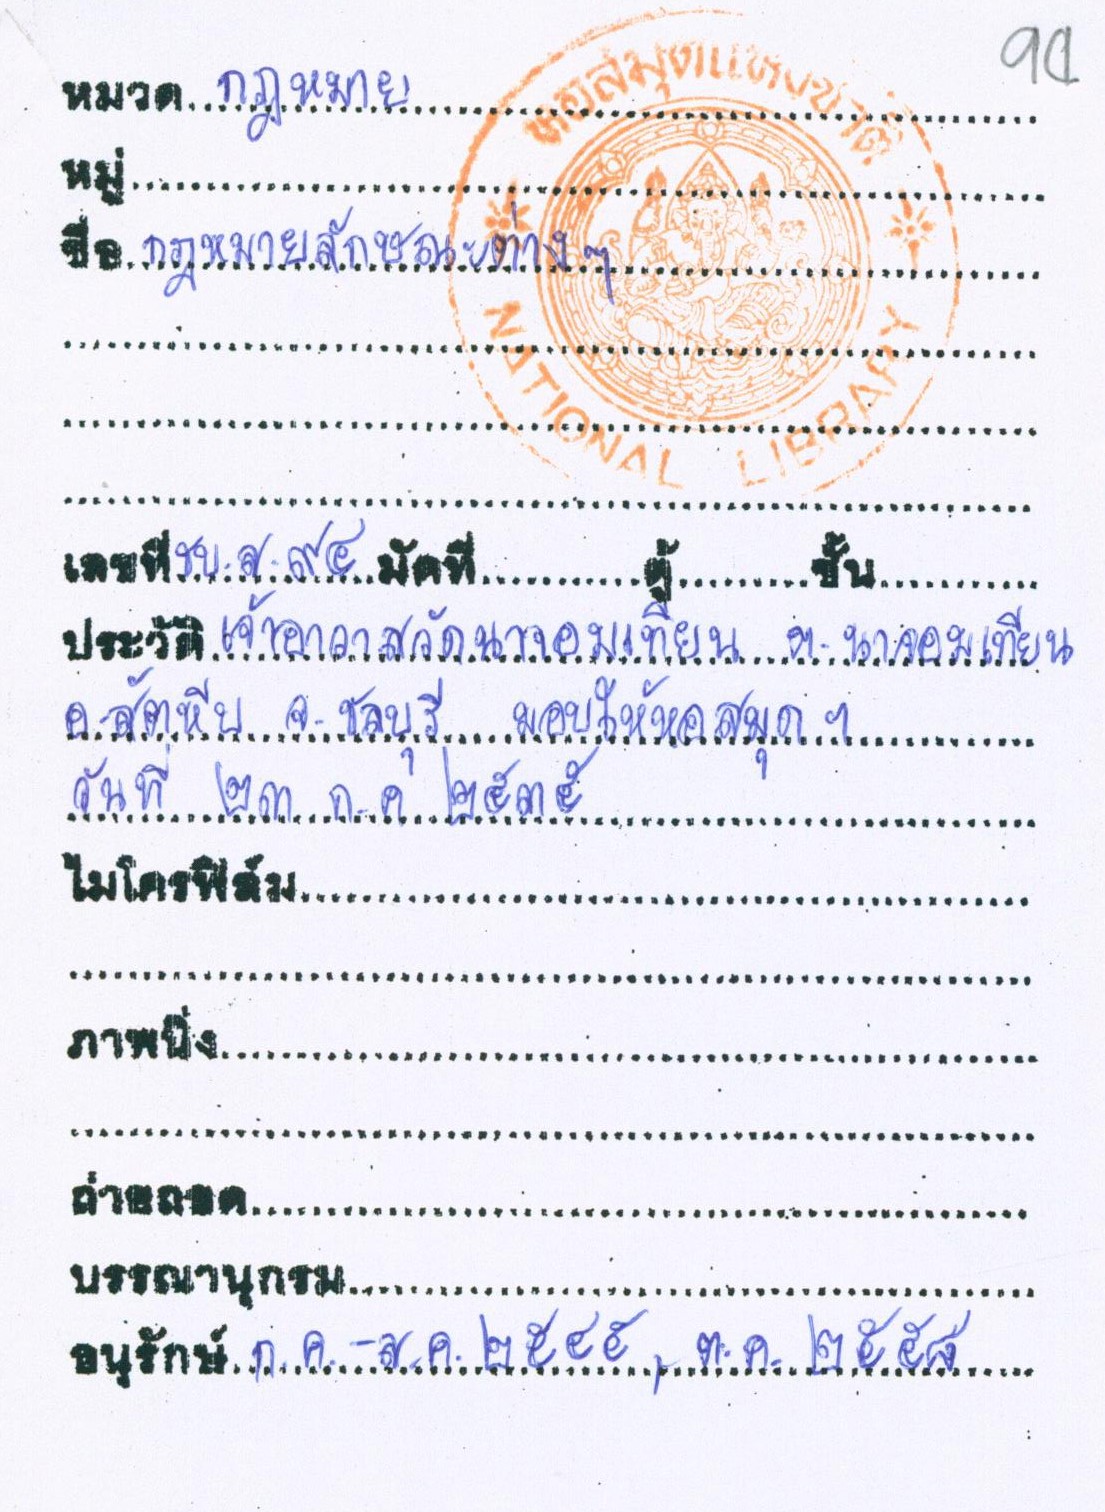 ๑๘
หอสมุดแห่งชาติ
NATIONAL LIBRARY
หมวด กฎหมาย
หมู่
ชื่อ กฎหมายลักษณะต่าง ๆ
เลขที่ ชบ.ส.๙๔ มัดที่ ตู้ ชั้น
ประวัติ เจ้าอาวาสวัดนาจอมเทียน ต. นาจอมเทียน
อ. สัตหีบ จ. ชลบุรี มอบให้หอสมุด ฯ
วันที่ ๒๓ ก.ค. ๒๕๓๕
ไมโครฟิล์ม
ภาพนิ่ง
ถ่ายถอด
บรรณานุกรม
อนุรักษ์ ก.ค.-ส.ค. ๒๕๔๕, ต.ค. ๒๕๕๘